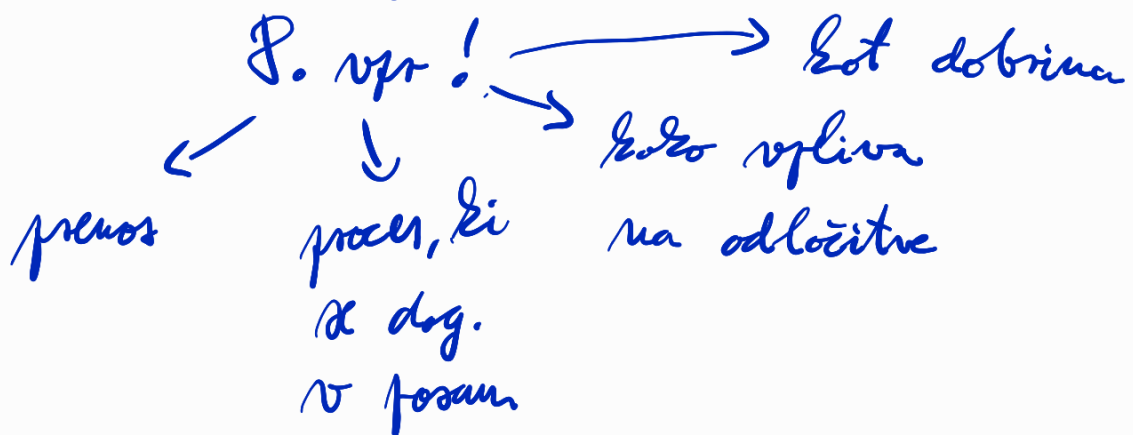 8. vpr! kot dobrina
kako vpliva
na odločitve
prenos
proces, ki
se dog.
v posam